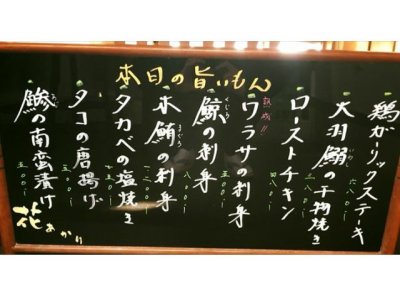 本日の旨いもん
鶏ガーリックステーキ
大羽鰯の干物焼き
ローストチキン
熟成!!
ワラサの刺身
鯨の刺身
くじら
本鮪の刺身
まぐろ
タカベの塩焼き
タコの唐揚げ
鯵の南蛮漬け
花あかり